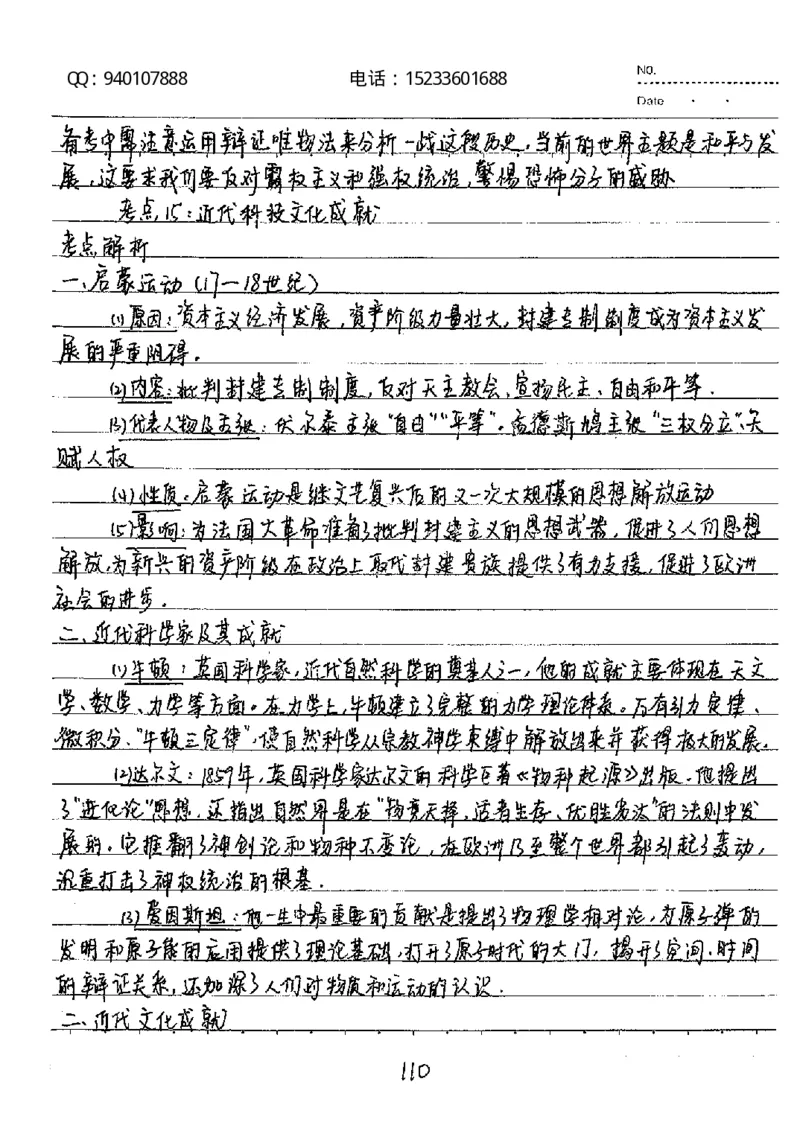 QQ：940107888
电话：15233601688
No.
Date
备考中需注意运用辩证唯物法来分析一战这段历史，当前的世界主题是和平与发
展，这要求我们要反对霸权主义和强权统治，警惕恐怖分子的威胁
考点15：近代科技文化成就
考点解析
一、启蒙运动（17—18世纪）
(1)原因：资本主义经济发展，资产阶级力量壮大，封建专制制度成为资本主义发
展的严重阻碍。
(2)内容：批判封建专制制度，反对天主教会、宣扬民主、自由和平等．
(3)代表人物及主张：伏尔泰主张“自由”“平等”。孟德斯鸠主张“三权分立”、天
赋人权
(4)性质：启蒙运动是继文艺复兴后的又一次大规模的思想解放运动
(5)影响：为法国大革命准备了批判封建主义的思想武器，促进了人们思想
解放，为新兴的资产阶级在政治上取代封建贵族提供了有力支援，促进了欧洲
社会的进步．
二、近代科学家及其成就
(1)牛顿：英国科学家，近代自然科学的奠基人之一，他的成就主要体现在天文
学、数学、力学等方面。在力学上，牛顿建立了完整的力学理论体系。万有引力定律、
微积分、“牛顿三定律”，使自然科学从宗教神学束缚中解放出来并获得极大的发展。
(2)达尔文：1859年，英国科学家达尔文的科学巨著《物种起源》出版．他提出
了“进化论”思想，还指出自然界是在“物竞天择，适者生存、优胜劣汰”的法则中发
展的．它推翻了神创论和物种不变论，在欧洲乃至整个世界都引起了轰动，
沉重打击了神权统治的根基．
(3)爱因斯坦：他一生中最重要的贡献是提出了物理学相对论，为原子弹的
发明和原子能的应用提供了理论基础，打开了原子时代的大门，揭开了空间、时间
的辩证关系，还加深了人们对物质和运动的认识．
二、近代文化成就
110